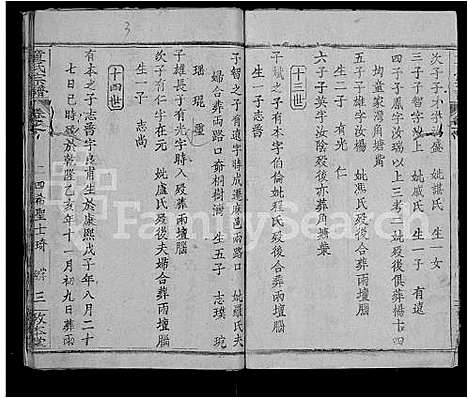 次子子 妣諶氏 生一女
三子子智字汝上 妣戚氏 生一子 有遠
四子子鳳字汝瑞以上三考 妣歿後俱葬楊十四
坵童家灣角塘背
五子子雄字汝楊 妣馮氏歿後合葬雨壇腦
生二子 有光 仁
六子子英字汝險歿後亦葬角塘葉
十三世
子斌之子有本字伯倫妣程氏歿後合葬雨壇腦
生一子 志晉
子智之子有遠字時成遷居邑兩路口 妣羅氏夫
婦合葬兩路口茆桐樹灣 生五子 志璞 琬
璠 琨 璽
子雄長子有光字時入歿葬雨壇腦
次子有仁字在元 妣盧氏歿後夫婦合葬雨壇腦
生一子 志尚
十四世
有本之子志晉字良甫生於康熙戊子年八月二十
七日巳時歿於乾隆乙亥年十一月初九日葬雨
三 敦
3
FamilySearch